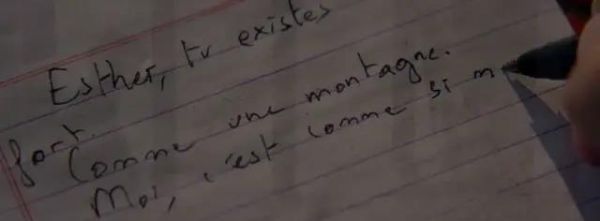 Esther, tu existes
fort.
Comme une montagne.
Moi, c'est comme si m